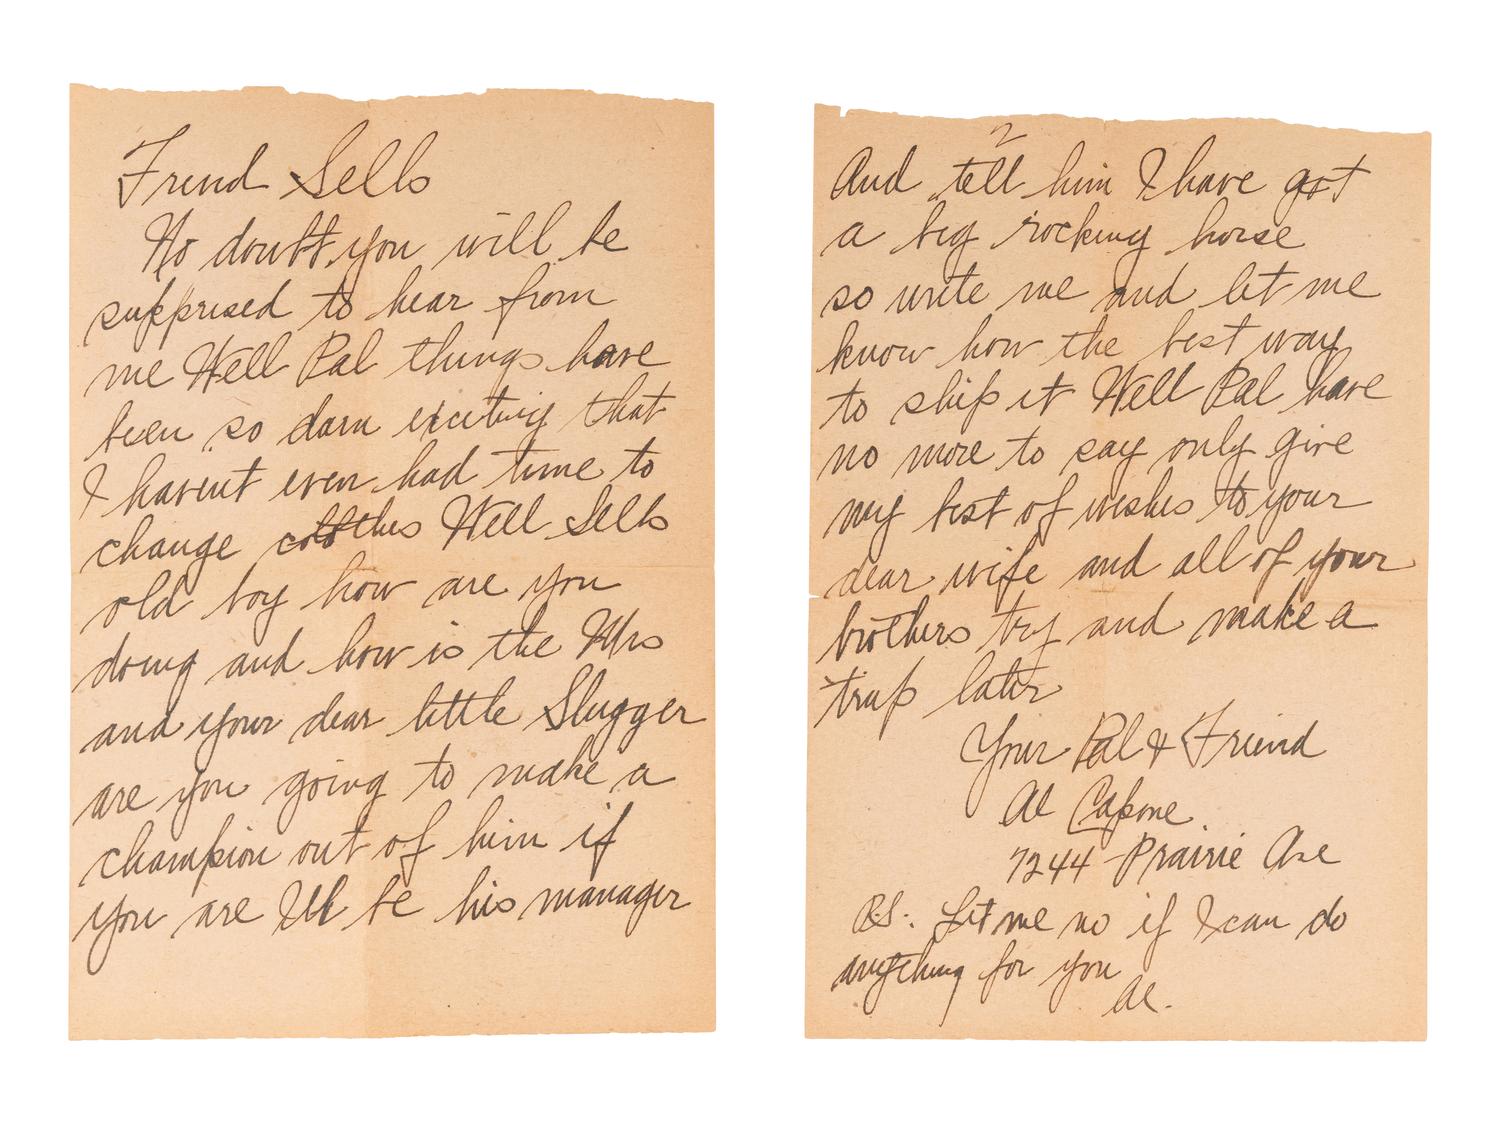 Frend Sells
No doubt you will be
supprised to hear from
me Well Pal things have
been so darn exciting that
I havent even had time to
change clothes Well Sells
old boy how are you
doing and how is the Mrs
and your dear little Slugger
are you going to make a
champion out of him if
you are I'll be his manager
2
And tell him I have got
a big rocking horse
so write me and let me
know how the best way
to ship it Well Pal have
no more to say only give
my best of wishes to your
dear wife and all of your
brothers try and make a
trap later
Your Pal & Friend
Al Capone
7244 Prairie Ave
P.S. Let me no if I can do
anything for you
Al.